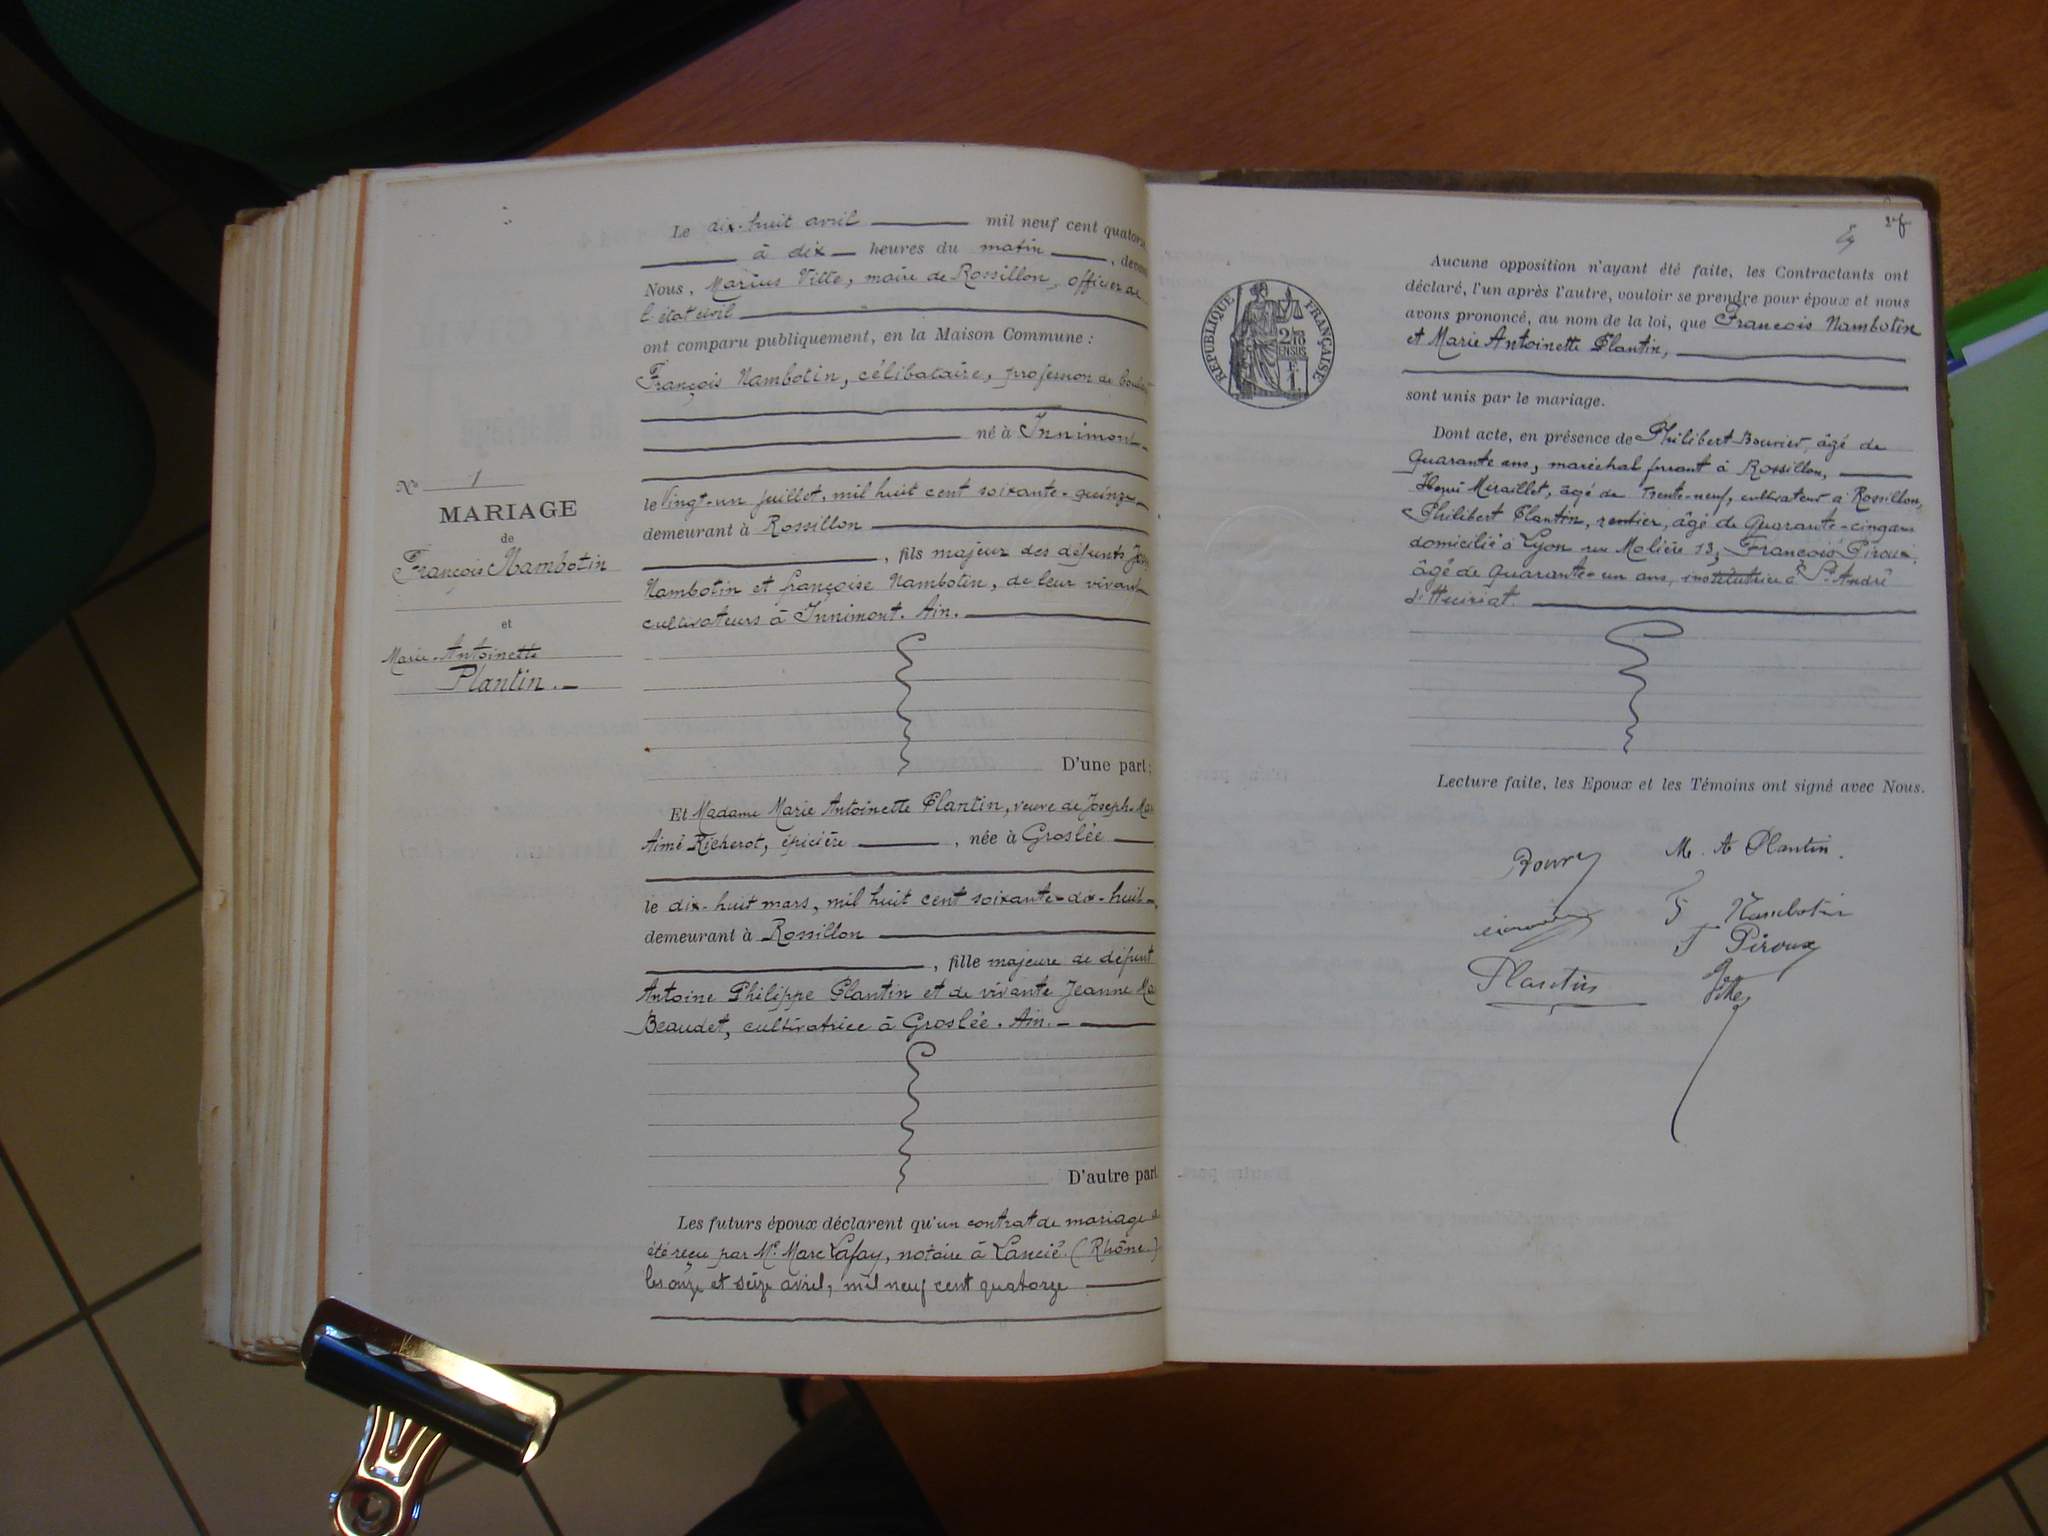 N° 1
MARIAGE
de
François Nambotin
et
Marie-Antoinette
Plantin.
Le dix-huit avril mil neuf cent quatorze
à dix heures du matin, devant
Nous, Marius Vitte, maire de Rossillon, officier de
l'état civil
ont comparu publiquement, en la Maison Commune :
François Nambotin, célibataire, profession de
né à Innimont
le Vingt-un juillet, mil huit cent soixante-quinze
demeurant à Rossillon
, fils majeur des défunts
Nambotin et françoise Nambotin, de leur vivant
cultivateurs à Innimont. Ain.
D'une part ;
Et Madame Marie Antoinette Plantin, veuve de Joseph-
Aimé Richerot, épicière, née à Groslée
le dix-huit mars, mil huit cent soixante-dix-huit
demeurant à Rossillon
, fille majeure de défunt
Antoine Philippe Plantin et de vivante Jeanne
Beaudet, cultivatrice à Groslée. Ain.
D'autre part
Les futurs époux déclarent qu'un contrat de mariage a
été reçu par Me Marc Lafay, notaire à Lancié (Rhône)
les onze et seize avril, mil neuf cent quatorze
RÉPUBLIQUE FRANÇAISE
2/10
EN SUS
F.
1.
Aucune opposition n'ayant été faite, les Contractants ont
déclaré, l'un après l'autre, vouloir se prendre pour époux et nous
avons prononcé, au nom de la loi, que François Nambotin
et Marie Antoinette Plantin,
sont unis par le mariage.
Dont acte, en présence de Philibert Bouvier, âgé de
quarante ans, maréchal ferrant à Rossillon,
Henri Miraillet, âgé de trente-neuf, cultivateur à Rossillon,
Philibert Plantin, rentier, âgé de quarante-cinq ans
domicilié à Lyon rue Molière 13, François Piroux
âgé de quarante-un ans, à St André
d'Huiriat.
Lecture faite, les Epoux et les Témoins ont signé avec Nous.
M. A Plantin.
F Nambotin
F Piroux
Plantin
Vitte